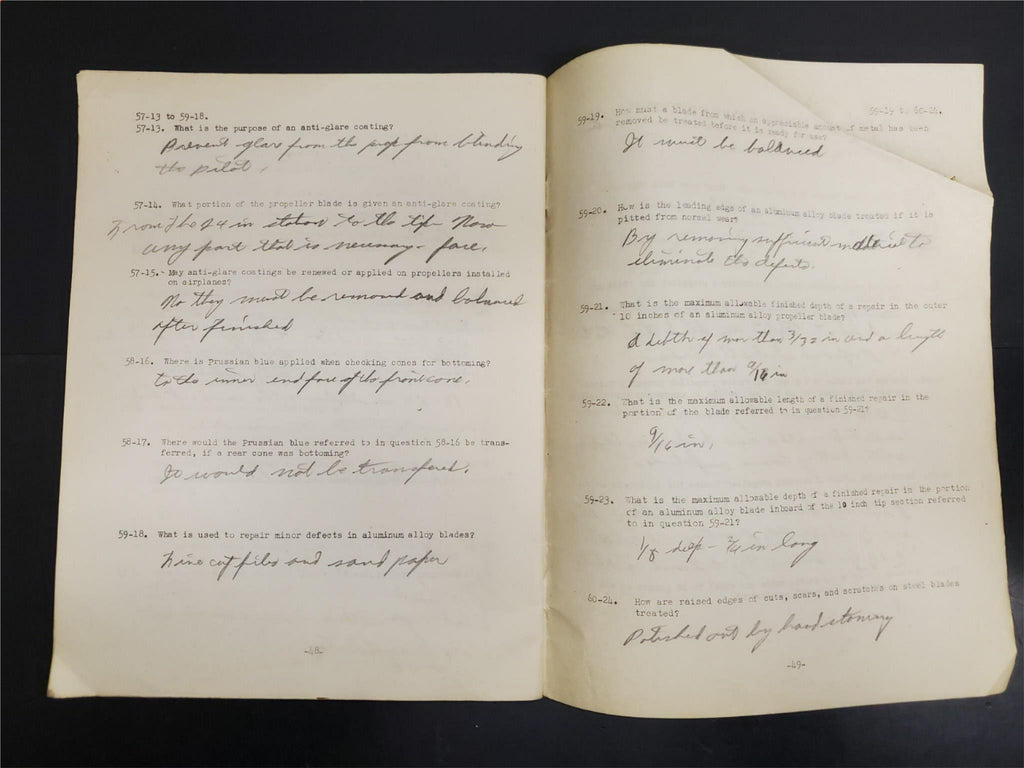 57-13 to 59-18.
57-13. What is the purpose of an anti-glare coating?
Prevent glar from the prop from blinding
the pilot.
57-14. What portion of the propeller blade is given an anti-glare coating?
From the 24 in station to the tip. Now
any part that is necessary - face.
57-15. May anti-glare coatings be renewed or applied on propellers installed
on airplanes?
No they must be removed and balanced
after finished
58-16. Where is Prussian blue applied when checking cones for bottoming?
to the inner end face of the front cone.
58-17. Where would the Prussian blue referred to in question 58-16 be trans-
ferred, if a rear cone was bottoming?
It would not be transfered.
59-18. What is used to repair minor defects in aluminum alloy blades?
Fine cut files and sand paper
-48-
59-19 to 60-24.
59-19. How must a blade from which an appreciable amount of metal has been
removed be treated before it is ready for use?
It must be balanced
59-20. How is the leading edge of an aluminum alloy blade treated if it is
pitted from normal wear?
By removing sufficient material to
eliminate the defects.
59-21. What is the maximum allowable finished depth of a repair in the outer
10 inches of an aluminum alloy propeller blade?
A debth of mor than 3/32 in and a length
of more than 9/16 in
59-22. What is the maximum allowable length of a finished repair in the
portion of the blade referred to in question 59-21?
9/16 in.
59-23. What is the maximum allowable depth of a finished repair in the portion
of an aluminum alloy blade inboard of the 10 inch tip section referred
to in question 59-21?
1/8 deep - 3/4 in long
60-24. How are raised edges of cuts, scars, and scratches on steel blades
treated?
Polished out by hand stoning
-49-